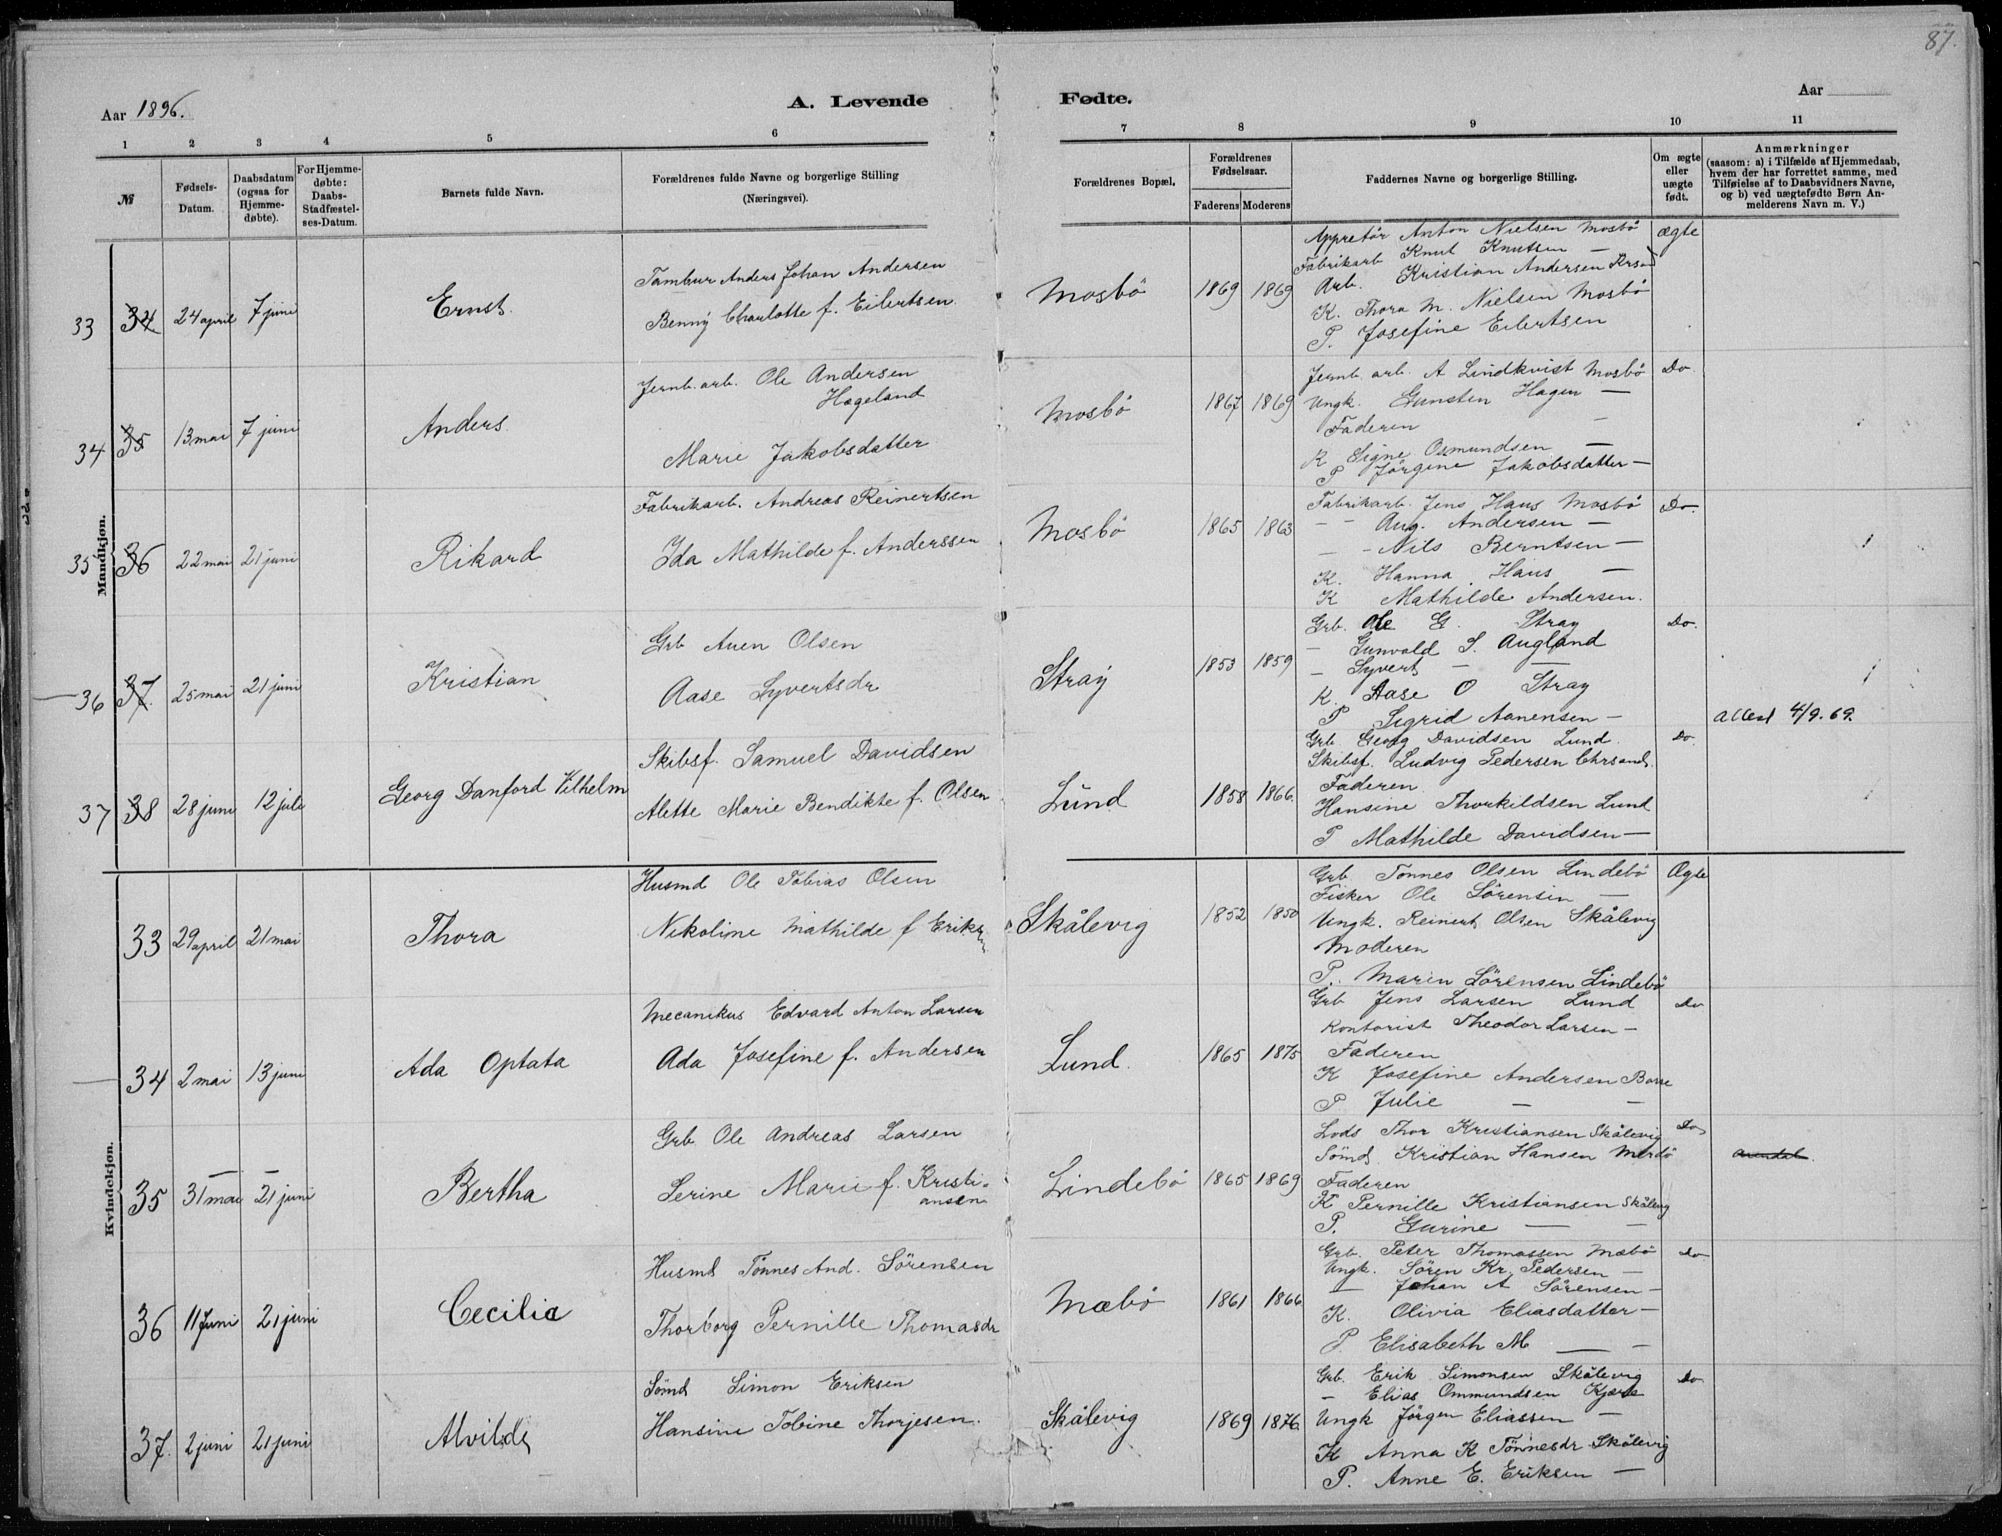 87.
Aar 1896.
A. Levende Fødte.
Aar
1 2 3 4 5 6 7 8 9 10 11
№
Fødsels-Datum.
Daabsdatum (ogsaa for Hjemme-døbte).
For Hjemme-døbte: Daabs-Stadfæstel-ses-Datum.
Barnets fulde Navn.
Forældrenes fulde Navne og borgerlige Stilling
(Næringsvei).
Forældrenes Bopæl.
Forældrenes Fødselsaar.
Faderens Moderens
Faddernes Navne og borgerlige Stilling.
Om ægte eller uægte født.
Anmærkninger
(saasom: a) i Tilfælde af Hjemmedaab,
hvem der har forrettet samme, med
Tilføielse af to Daabsvidners Navne,
og b) ved uægtefødte Børn An-
melderens Navn m. V.)
Mandkjøn.
33 34 24 april 7 juni Ernst.
Tambur Anders Johan Andersen
Benny Charlotte f. Eilertsen
Mosbö 1869 1869
Appretör Anton Nielsen Mosbö
Fabrikarb Knut Knutsen —
Arb. Kristian Andersen Krsand
K. Thora M. Nielsen Mosbö
P. Josefine Eilertsen
ægte
34 35 13 mai 7 juni Anders.
Jernb. arb. Ole Andersen
Hægeland
Marie Jakobsdatter
Mosbö 1867 1869
Jernb. arb. A Lindkvist Mosbö
Ungk. Gunsten Hagen —
Faderen —
K Signe Osmundsen —
P Jörgine Jakobsdatter —
Do
35 36 22 mai 21 juni Rikard
Fabrikarb. Andreas Reinertsen
Ida Mathilde f. Anderssen
Mosbö 1865 1863
Fabrikarb. Jens Haus Mosbö
— - Aug. Andersen —
— - Nils Berntsen —
K. Hanna Haus —
K Mathilde Andersen.
Do.
36 37. 25 mai 21 juni Kristian
Grb Auen Olsen
Aase Syvertsdr
Stray 1853 1859
Grb. Ole G. Stray
— Gunvald S. Augland
— Syvert — —
K. Aase O Stray
P Sigrid Aanensen —
Do.
attest 4/9.69.
37 38 28 juni 12 juli Georg Danford Vilhelm
Skibsf. Samuel Davidsen
Alette Marie Bendikte f. Olsen
Lund 1858 1866.
Grb Georg Davidsen Lund.
Skibsf. Ludvig Pedersen Chrsand.
Faderen
Hansine Thorkildsen Lund
P Mathilde Davidsen —
Do
Kvindekjøn.
33 29 april 21 mai Thora
Husmd Ole Tobias Olsen
Nikoline Mathilde f Eriksen
Skålevig 1852 1850
Grb Tönnes Olsen Lindebö
Fisker Ole Sörensen —
Ungk. Reinert Olsen Skålevig
Moderen
P. Maren Sörensen Lindebö
Ægte
34 2 mai 13 juni Ada Optata
Mecanikus Edvard Anton Larsen
Ada Josefine f. Andersen
Lund. 1865 1875
Grb Jens Larsen Lund
Kontorist Theodor Larsen —
Faderen
K Josefine Andersen
P Julie — —
Do
35 31 mai 21 juni Bertha
Grb Ole Andreas Larsen
Serine Marie f. Kristi-
ansen
Lindebö 1865 1869
Lods Thor Kristiansen Skålevig
Sömd. Kristian Hansen Merdö
Faderen
K Pernille Kristiansen Skålevig
P. Gurine — —
Do
Arendal.
36 11 juni 21 juni Cecilie
Husmd Tönnes And. Sörensen
Thorborg Pernille Thomasdr
Mæbö 1861 1866
Grb. Peter Thomassen Mæbö
Ungk. Sören Kr. Pedersen —
— Johan A Sörensen —
K. Olivia Eliasdatter —
P Elisabeth M — —
Do
37. 2 juni 21 juni Alvilde
Sömd Simon Eriksen
Hansine Tobine Thorjesen.
Skålevig 1869 1876
Grb. Erik Simonsen Skålevig
— Elias Ommundsen Kjære
Ungk Jörgen Eliassen —
K Anna K Tönnesdr Skålevig
P. Anne E. Eriksen —
Do